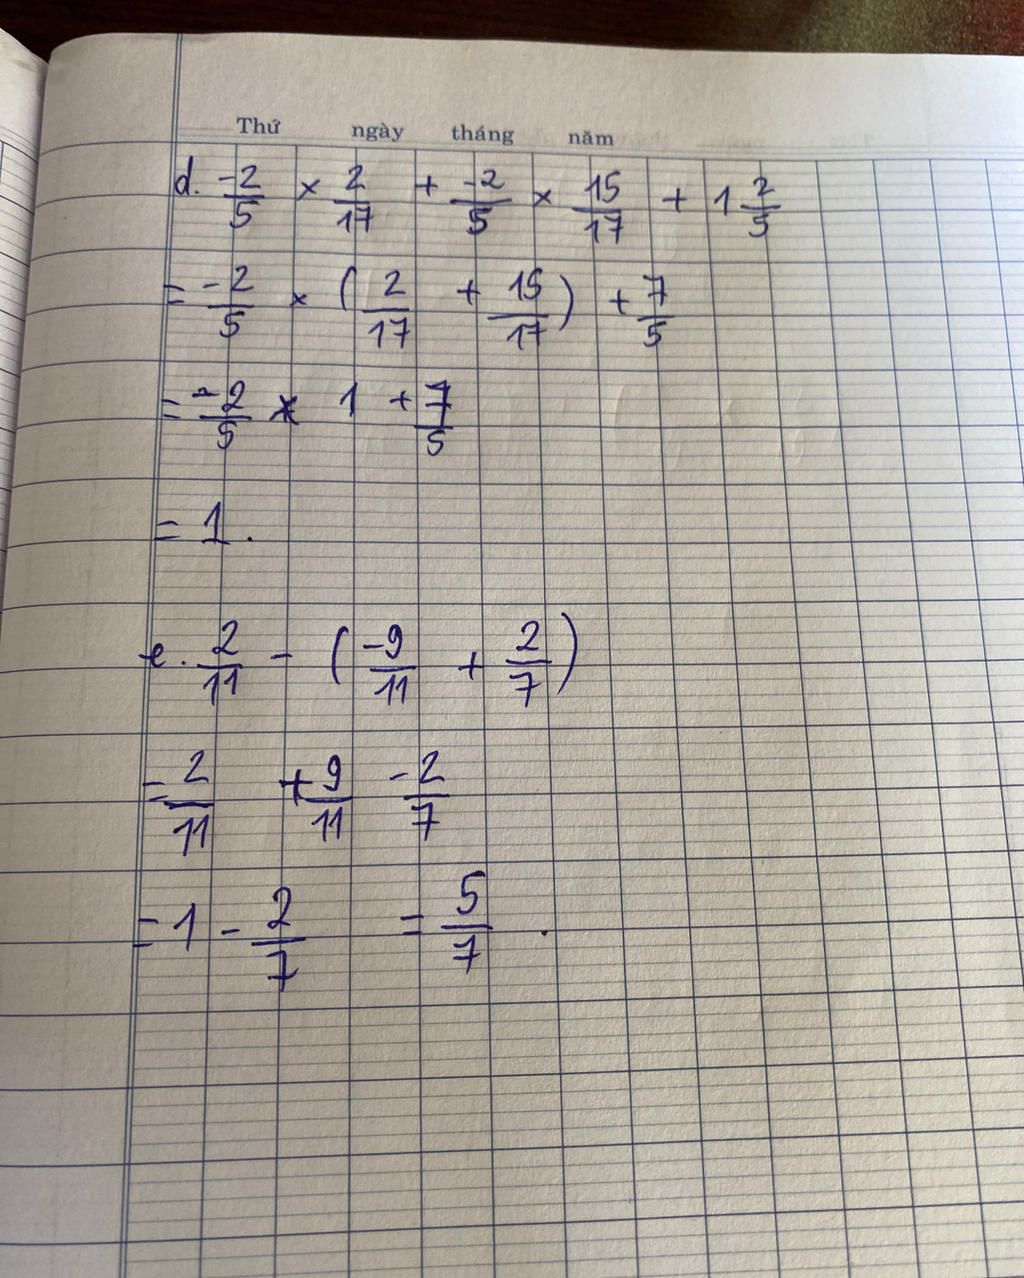 Thứ ngày tháng năm
d. -2/5 × 2/17 + -2/5 × 15/17 + 1 2/5
= -2/5 × (2/17 + 15/17) + 7/5
= -2/5 × 1 + 7/5
= 1.
e. 2/11 - (-9/11 + 2/7)
= 2/11 + 9/11 - 2/7
= 1 - 2/7 = 5/7.